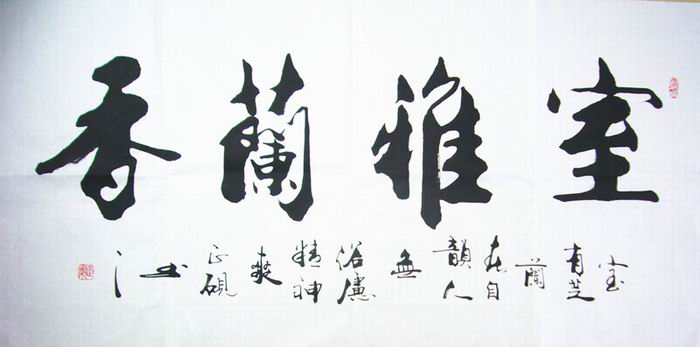 室雅蘭香
室有芝蘭春自韻人無俗慮精神爽正硯书